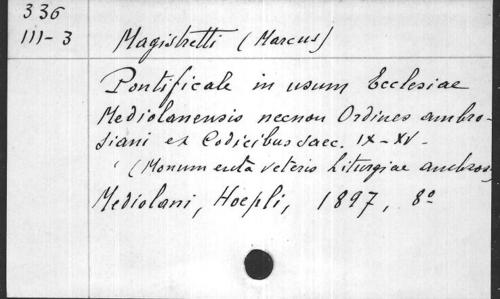 336
III-3 Magistretti (Marcus)
Pontificale in usum Ecclesiae
Mediolanensis necnon Ordines ambro-
siani ex Codicibus saec. IX-XV-
(Monumenta veteris Liturgiae ambros)
Mediolani, Hoepli, 1897, 8º